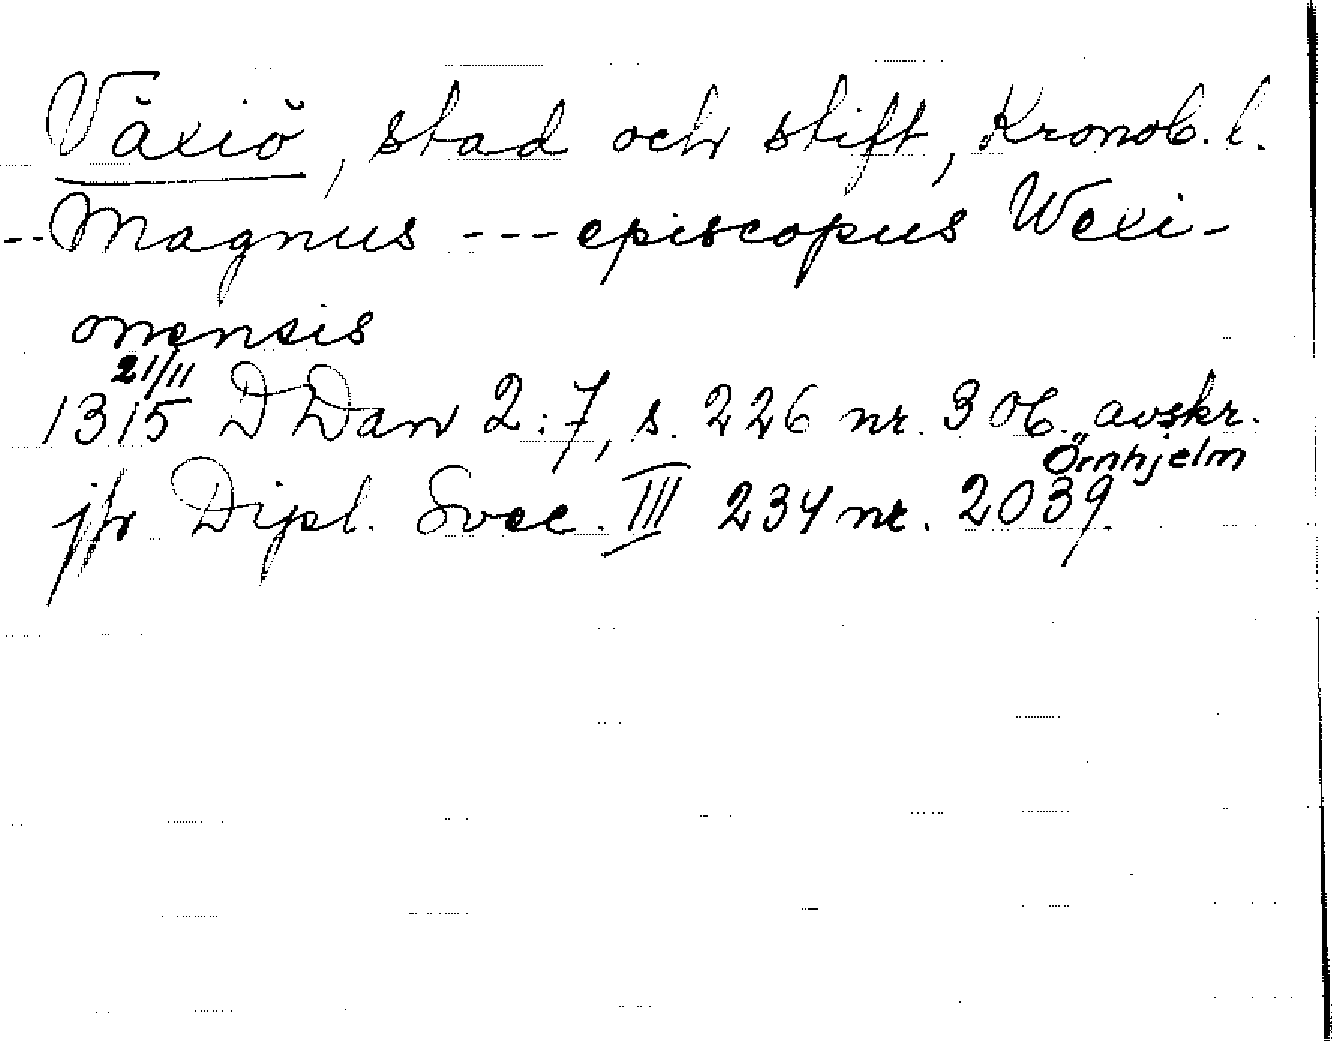 Växiö, stad och stift, Kronob. l.
--Magnus --- episcopus Wexi-
onensis
21/11
1315 DDan 2:7, s. 226 nr. 306. avskr.
Örnhjelm
jfr Dipl. Svec. III 234 nr. 2039.